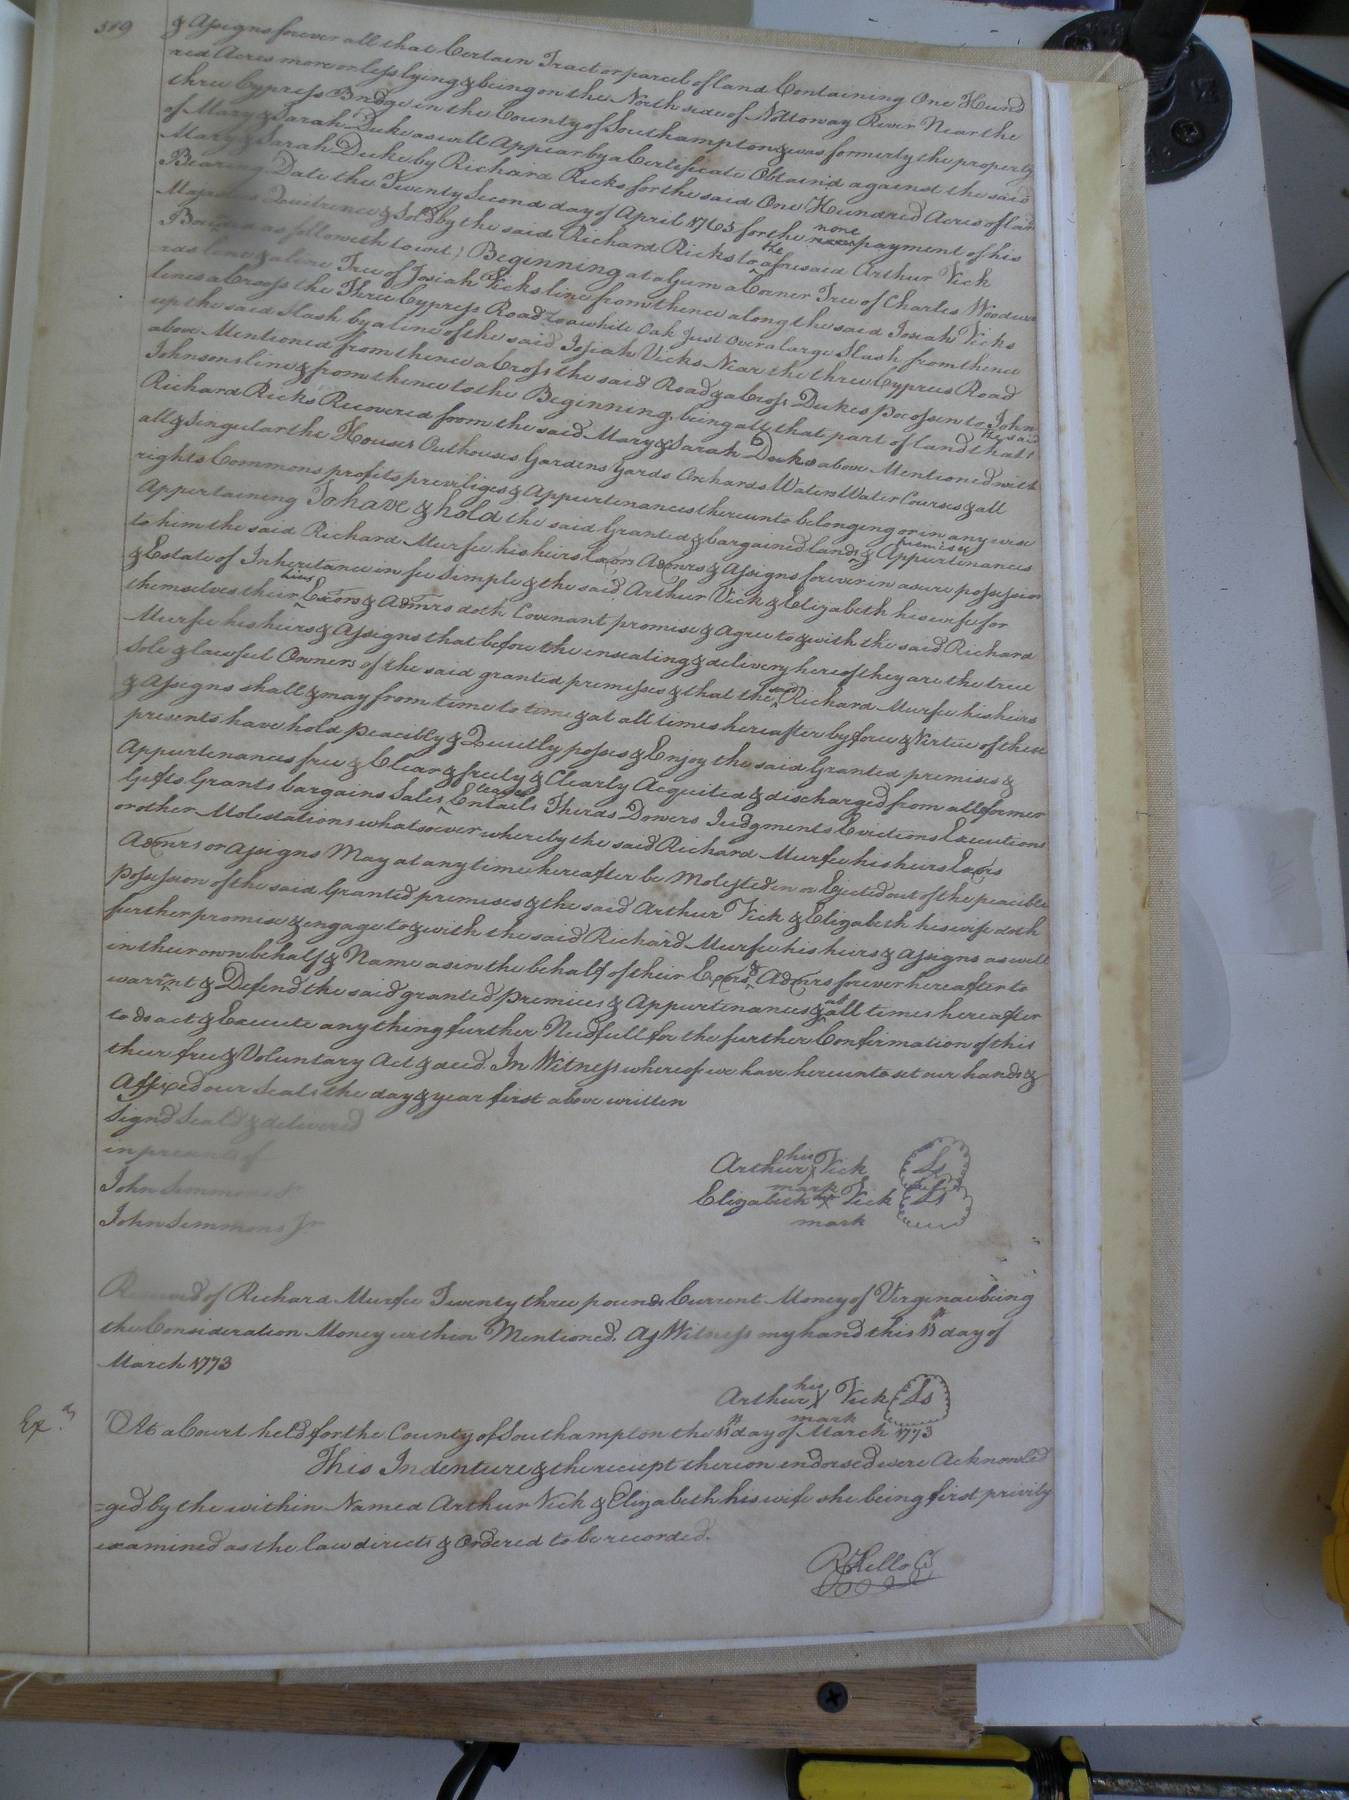 519
& Assigns forever all that Certain Tract or parcel of land Containing One Hund
red Acres more or less lying & being on the North side of Nottoway River Near the
three Cypress Bridge in the County of Southampton & was formerly the property
of Mary & Sarah Duke as will Appear by a Certificate Obtaind against the said
Mary & Sarah Duke by Richard Ricks for the said One Hundred Acres of lan
Bearing Date the Twenty Second day of April 1763 for the none payment of his
Majesties Quitrence & Sold by the said Richard Ricks to the afresaid Arthur Vick
Bounded as followeth to wit) Beginning at a Gum a Corner Tree of Charles Woodwa
rds line & a line Tree of Josiah Vicks line from thence along the said Josiah Vicks
lines a Cross the Three Cypress Road to a white Oak Just Over a large Slash from thence
up the said Slash by a line of the said Josiah Vicks Near the three Cypress Road
above Mentioned from thence a Cross the said Road & a Cross Dukes Pocossen to John
Johnsons line & from thence to the Beginning being all that part of land that the said
Richard Ricks Recovered from the said Mary & Sarah Duke above Mentioned with
all & Singular the Houses Outhouses Gardens Yards Orchards Waters Water Courses & all
rights Commons profits previliges & Appurtenances thereunto belonging or in any wise
Appertaining To have & hold the said Granted & bargained land & premises & Appurtenances
to him the said Richard Murfee his heirs Exors Admrs & Assigns forever in a sure possession
& Estate of Inheritance in fee Simple & the said Arthur Vick & Elizabeth his wife for
themselves their heirs Exors & Admrs doth Covenant promise & Agree to & with the said Richard
Murfee his heirs & Assigns that before the insealing & delivery hereof they are the true
Sole & lawful Owners of the said granted premisses & that the said Richard Murfee his heirs
& Assigns shall & may from time to time & at all times hereafter by force & Virtue of these
presents have hold peacibly & Quietly posses & Enjoy the said Granted premises &
Appurtenances free & Clear & freely & Clearly Acquited & discharged from all former
Gifts Grants bargains Sales Leases Entails Therds Dowers Judgments Evictions Executions
or other Molestations whatsoever whereby the said Richard Murfee his heirs Exors
Admrs or assigns May at any time hereafter be Molested in or Ejected out of the peacible
possession of the said Granted premises & the said Arthur Vick & Elizabeth his wife doth
further promise & engage to & with the said Richard Murfee his heirs & assigns as well
in their own behalf & Name as in the behalf of their Exors & Admrs forever hereafter to
warrent & Defend the said granted premices & Appurtinances & at all times hereafter
to do act & Execute any thing further Needfull for the further Confirmation of this
their free & Voluntary Act & deed. In Witness whereof we have hereunto set our hands &
Affixed our Seals the day & year first above written
Signd Seald & delivered
in presents of
John Simmons Sr
John Simmons Jr
Arthur his X mark Vick Ls
Elizabeth her X mark Vick Ls
Received of Richard Murfee Twenty three pounds Current Money of Virginae being
the Consideration Money within Mentioned. As Witness my hand this 11th day of
March 1773
Arthur his X mark Vick Ls
Exd At a Court held for the County of Southampton the 11th day of March 1773
This Indenture & the receipt thereon endorsed were Acknowled
=ged by the within Named Arthur Vick & Elizabeth his wife she being first privily
examined as the law directs & Ordered to be recorded.
R Kello C